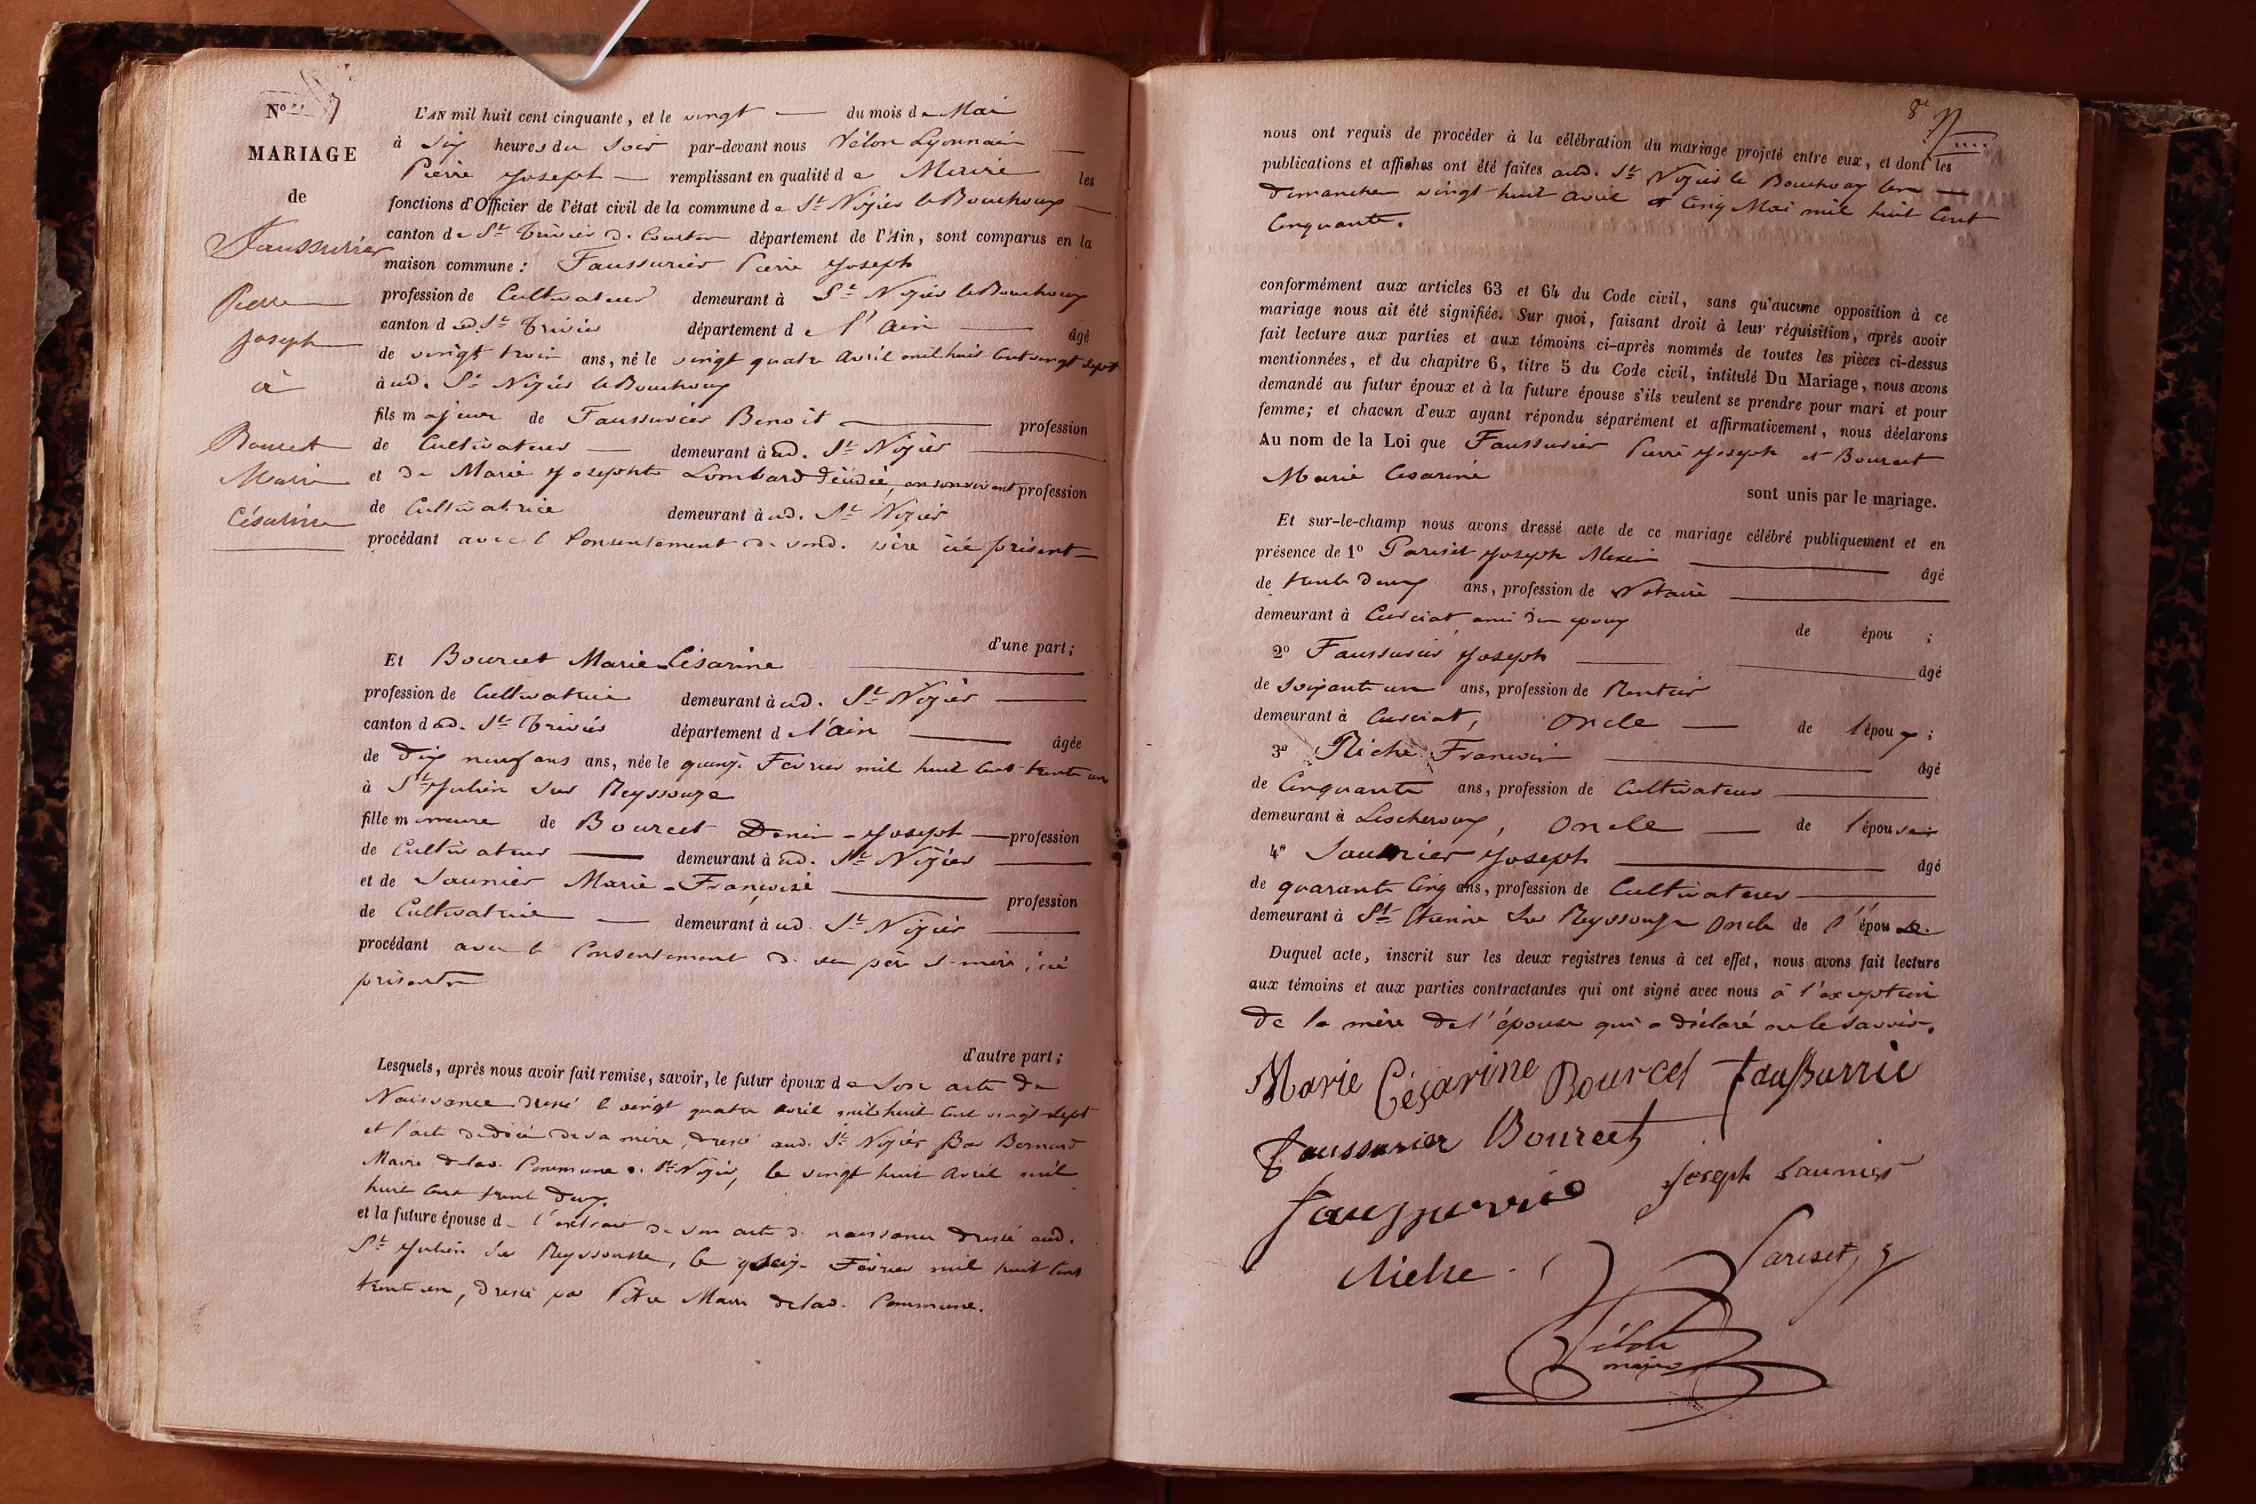 N° 7
MARIAGE
de
Faussurier
Pierre
Joseph
à
Bourcet
Marie
Césarine
L'AN mil huit cent cinquante, et le vingt — du mois de Mai
à six heures du soir par-devant nous Vélon Lyonnais
Pierre Joseph — remplissant en qualité de Maire les
fonctions d'Officier de l'état civil de la commune de St Nizier le Bouchoux
canton de St Trivier de Courtes département de l'Ain, sont comparus en la
maison commune : Faussurier Pierre Joseph
profession de Cultivateur demeurant à St Nizier le Bouchoux
canton dud. St Trivier département de l'Ain — âgé
de vingt trois ans, né le vingt quatre avril mil huit cent vingt sept
à ud. St Nizier le Bouchoux
fils majeur de Faussurier Benoit — profession
de Cultivateur — demeurant à ud. St Nizier
et de Marie Josephte Lombard décédée, en son vivant profession
de Cultivatrice demeurant à ud. St Nizier
procédant avec le Consentement de sond. père ici présent
d'une part ;
Et Bourcet Marie-Césarine
profession de Cultivatrice demeurant à ud. St Nizier
canton dud. St Trivier département de l'ain — âgée
de Dix neuf ans ans, née le quinze Février mil huit cent trente un
à St Julien sur Reyssouze
fille mineure de Bourcet Denis-Joseph — profession
de Cultivateur — demeurant à ud. St Nizier
et de Saunier Marie-Françoise — profession
de Cultivatrice — demeurant à ud. St Nizier
procédant avec le Consentement de ses père et mère, ici
présents
d'autre part ;
Lesquels, après nous avoir fait remise, savoir, le futur époux de son acte de
Naissance dressé le vingt quatre avril mil huit cent vingt sept
et l'acte de décès de sa mère, dressé aud. St Nizier par Bernard
Maire de lad. Commune de St Nizier, le vingt huit avril mil
huit cent trente deux
et la future épouse de l'extrait de son acte de naissance dressé aud.
St Julien sur Reyssouze, le Février mil huit cent
trente un, dressé par Maire de lad. Commune.
8e
nous ont requis de procéder à la célébration du mariage projeté entre eux, et dont les
publications et affiches ont été faites aud. St Nizier le Bouchoux les
dimanches vingt huit avril et Cinq Mai mil huit Cent
Cinquante.
conformément aux articles 63 et 64 du Code civil, sans qu'aucune opposition à ce
mariage nous ait été signifiée. Sur quoi, faisant droit à leur réquisition, après avoir
fait lecture aux parties et aux témoins ci-après nommés de toutes les pièces ci-dessus
mentionnées, et du chapitre 6, titre 5 du Code civil, intitulé Du Mariage, nous avons
demandé au futur époux et à la future épouse s'ils veulent se prendre pour mari et pour
femme; et chacun d'eux ayant répondu séparément et affirmativement, nous déclarons
Au nom de la Loi que Faussurier Pierre Joseph et Bourcet
Marie Césarine
sont unis par le mariage.
Et sur-le-champ nous avons dressé acte de ce mariage célébré publiquement et en
présence de 1° Pariset Joseph — âgé
de trente deux ans, profession de Notaire
demeurant à Curciat ami des époux de épou ;
2° Faussurier Joseph — âgé
de soixante un ans, profession de Rentier
demeurant à Curciat, oncle — de l'époux ;
3° Riche François — âgé
de Cinquante ans, profession de Cultivateur
demeurant à Lescheroux, oncle — de l'épouse
4° Saunier Joseph — âgé
de quarante Cinq ans, profession de Cultivateur
demeurant à St Etienne sur Reyssouze oncle de l'épouse
Duquel acte, inscrit sur les deux registres tenus à cet effet, nous avons fait lecture
aux témoins et aux parties contractantes qui ont signé avec nous à l'exception
de la mère de l'épouse qui a déclaré ne le savoir.
Marie Césarine Bourcet Faussurrié
Faussurier Bourcet
Joseph Saunier
Riche
Pariset
Vélon
maire